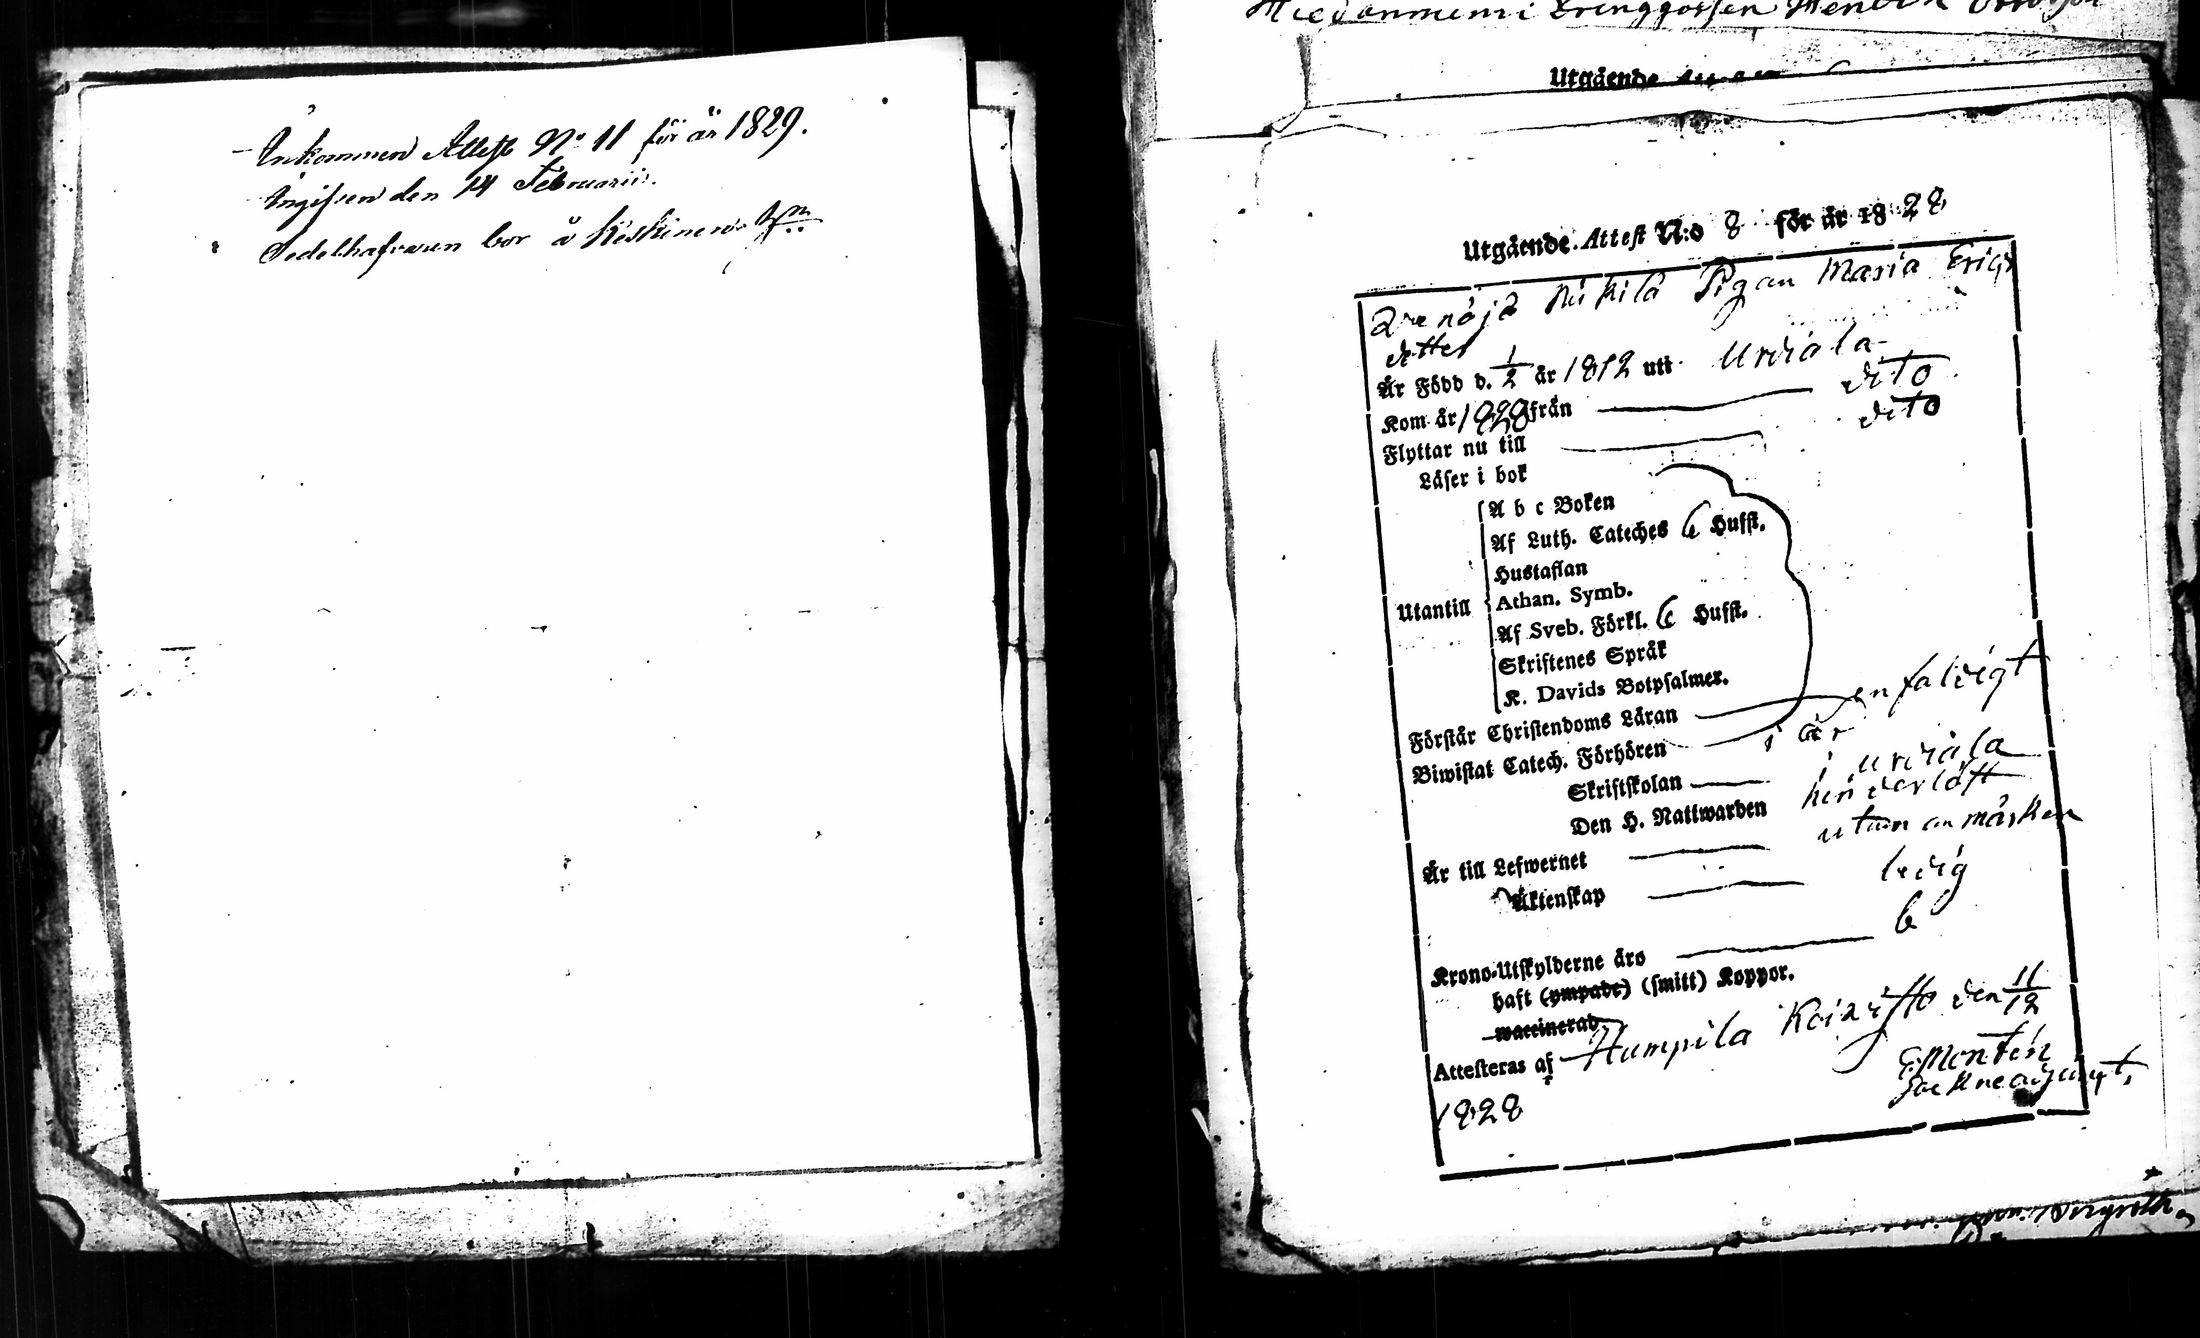 Inkommen Attest No 11 för år 1829.
Ingifven den 14 Februarii.
Sedelhafvaren bor å Keskinen
Utgående
Utgående Attest N:o 8 för år 1828
Pigan Maria Erics
dotter
Är Född d. 1/2 år 1812 uti Urdiala
Kom år 1828 från dito
Flyttar nu till dito
Läser i bok
A b c Boken
Af Luth. Cateches 6 Hufst.
Hustaflan
Utantill Athan. Symb.
Af Sveb. Förkl. 6 Hufst.
Skriftenes Språk
K. Davids Botpsalmer.
Förstår Christendoms Läran enfaldigt
Biwistat Catech. Förhören i år
Skriftskolan i Urdiala
Den H. Nattwarden hinderlöst
Är till Lefwernet utan anmärken
Äktenskap ledig
Krono-Utskylderne äro b
haft (ympade) (smitt) Koppor.
waccinerad
Attesteras af Humpila Koivisto den 11/12
1828
G: Montén